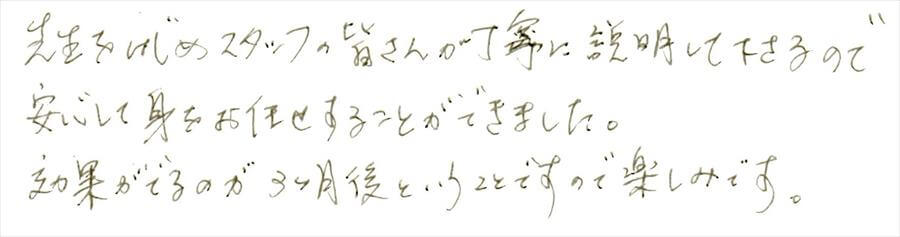 先生をはじめスタッフの皆さんが丁寧に説明して下さるので
安心して身をお任せすることができました。
効果がでるのが3ヶ月後ということですので楽しみです。